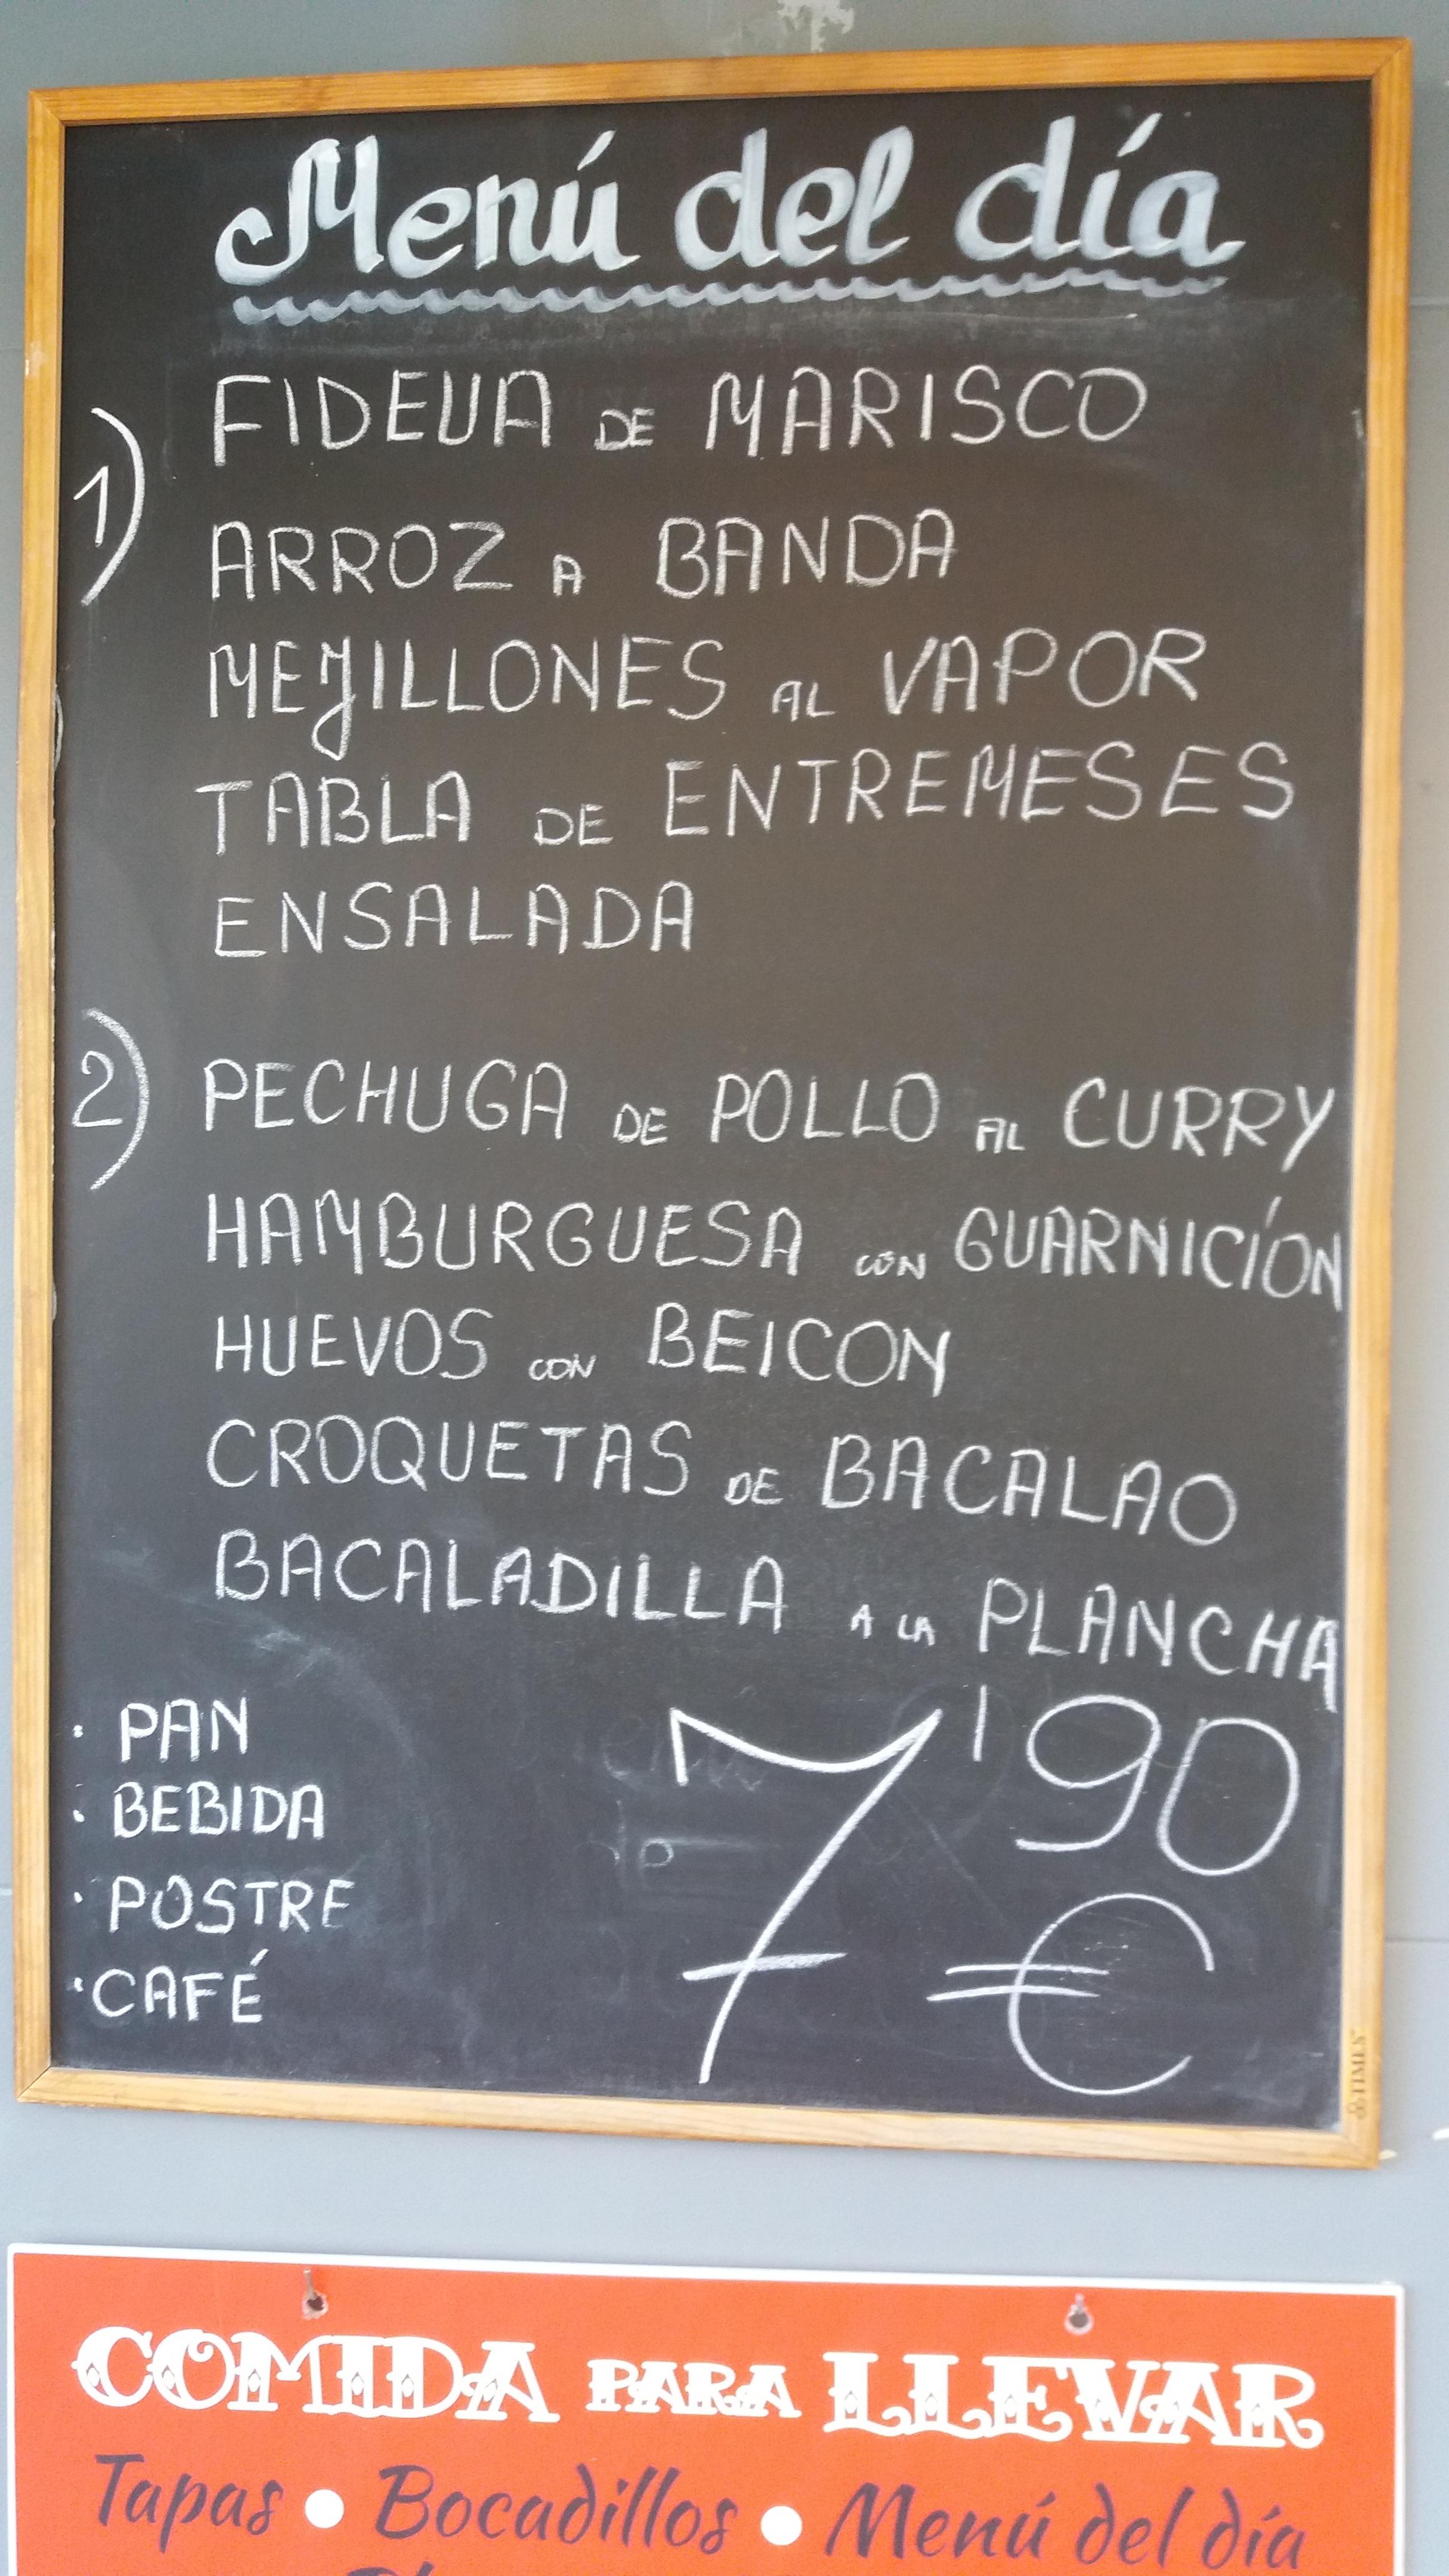 Menú del día
FIDEUA DE MARISCO
1)
ARROZ A BANDA
MEJILLONES AL VAPOR
TABLA DE ENTREMESES
ENSALADA
2) PECHUGA DE POLLO AL CURRY
HAMBURGUESA CON GUARNICÍON
HUEVOS CON BEICON
CROQUETAS DE BACALAO
BACALADILLA A LA PLANCHA
· PAN
· BEBIDA
· POSTRE
· CAFÉ
7'90
€
TIMES
COMIDA PARA LLEVAR
Tapas • Bocadillos • Menú del día